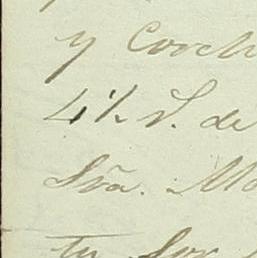 y Coch
4½ S. de
Sra. Ma
tu Sor